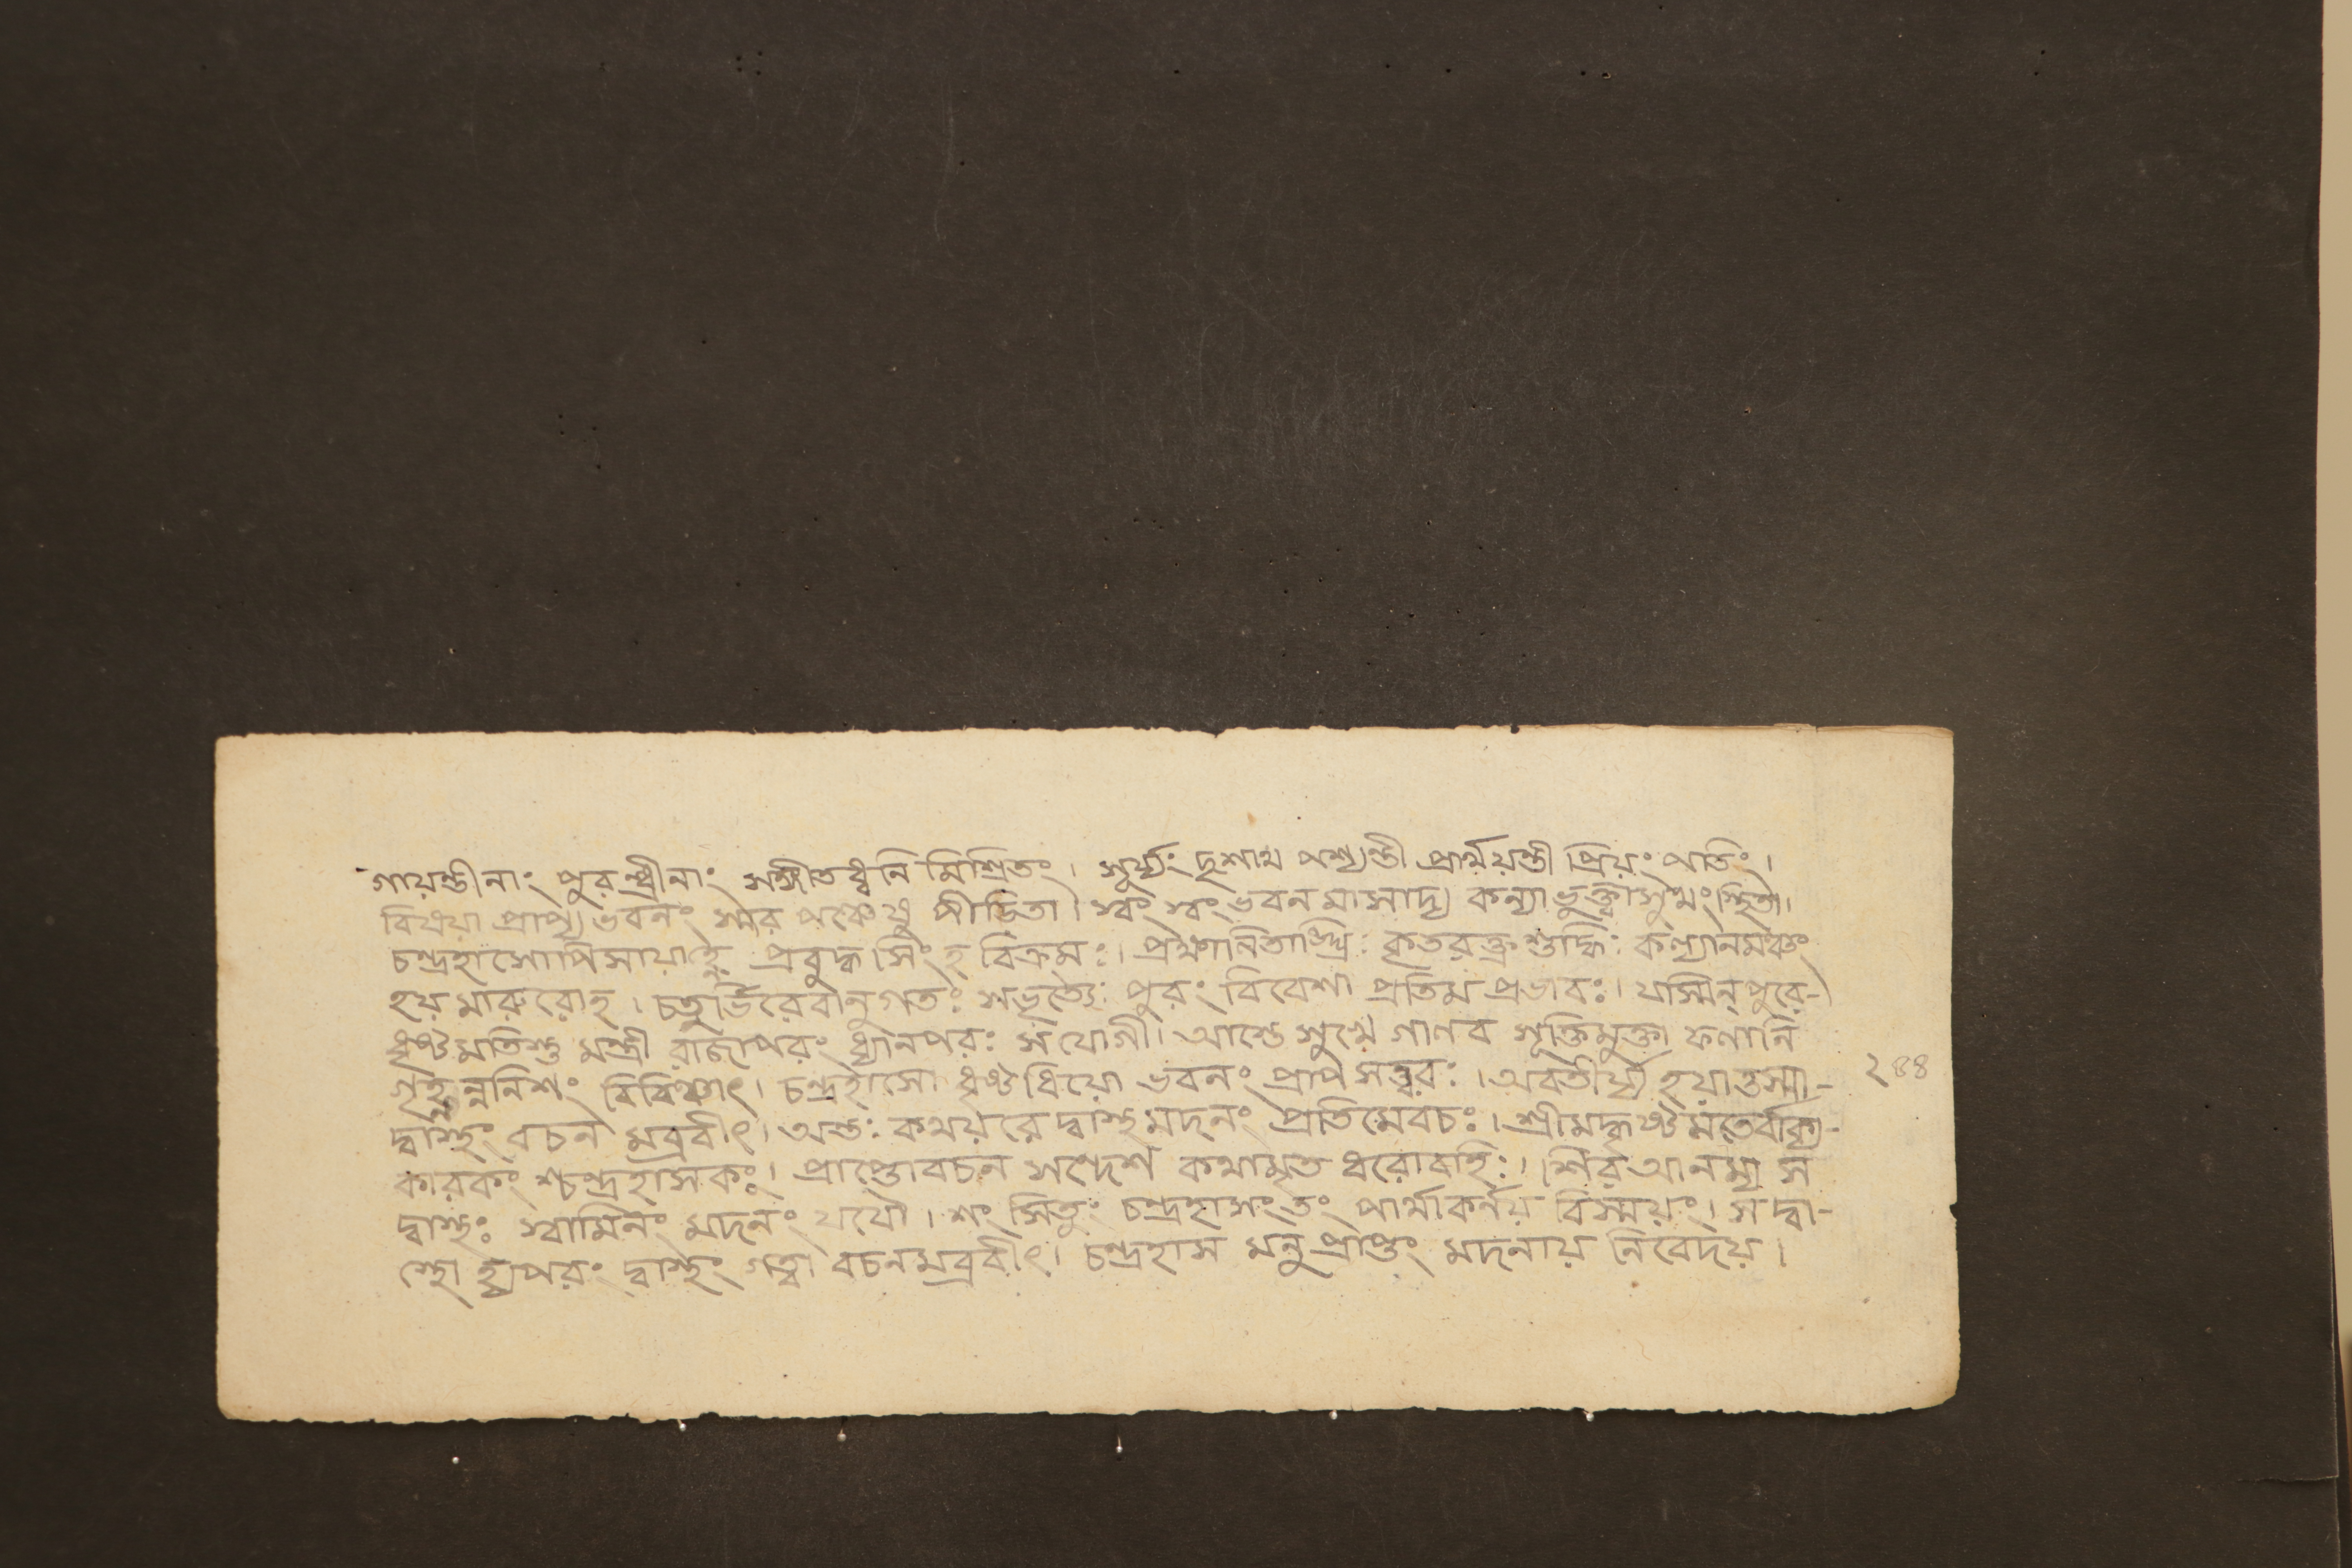 গায়ন্তীনাং পুরন্ধ্রীনাং সঙ্গীতধ্বনি মিশ্রিতং । সূর্য্যং দৃশাথ পশ্যন্তী প্রার্থয়ন্তী প্রিয়ং পতিং ।
বিষয়া প্রাপ্য ভবনং স্মর পঞ্চেষু পীড়িতা । স্বং স্বং ভবনমাসাদ্য কন্যা ভুক্ত্বা সুখং স্থিতা ।
চন্দ্রহাসোপি সায়াহ্নে প্রবুদ্ধ সিংহ বিক্রমঃ । প্রক্ষালিতাঙ্ঘ্রি কৃতরক্ত্র শুদ্ধিঃ কল্যানমঞ্চং
হয়মারুরোহ । চতুর্ভিরেবানুগতঃ সভৃত্যৈঃ পুরং বিবেশা প্রতিম প্রভাবঃ । যস্মিন্ পুরে-
ধৃষ্টমতিস্তু মন্ত্রী রাজাপরং ধ্যানপরঃ সযোগী । আস্তে সুখে গালব সূক্তিমুক্তা ফলানি
গৃহ্নন্ননিশং বিবিঞ্চাৎ । চন্দ্রহাসো ধৃষ্টধিয়ো ভবনং প্রাপ সত্ত্বরঃ । অবতীর্য্য হয়াত্তস্মা-
২৪৪
দ্বাস্থং বচন মব্রবীৎ । অন্তঃ কথয়রে দ্বাস্থ মদনং প্রতিমেবচঃ । শ্রীমদ্ধৃষ্টমতের্বাক্য-
কারকং শ্চন্দ্রহাসকঃ । প্রাপ্তোবচন সন্দেশ কথামৃত ধরোবহিঃ । শির আনম্য স
দ্বাস্থঃ স্বামিনং মদনং যযৌ । শং সিতুং চন্দ্রহাসং তং পার্থাকর্নয় বিস্ময়ং । স দ্বা-
স্থো হ্যপরং দ্বাস্থং গত্বা বচনমব্রবীৎ । চন্দ্রহাস মনুপ্রাপ্তং মদনায় নিবেদয় ।